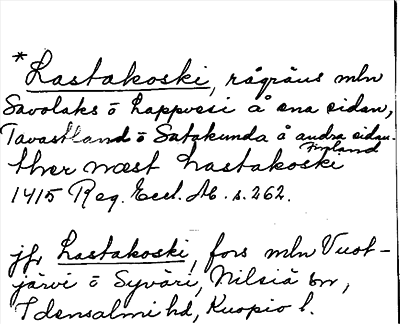 *Lastakoski, rågräns mln
Savolaks ō Lappvesi å ena sidan,
Tavastland ō Satakunda å andra sidan.
Finland
ther næst Lastakoski
1415 Reg. Eccl. Ab. s. 262.
jfr Lastakoski, fors mln Vuot-
järvi ō Syväri, Nilsiä sn,
Idensalmi hd, Kuopio l.